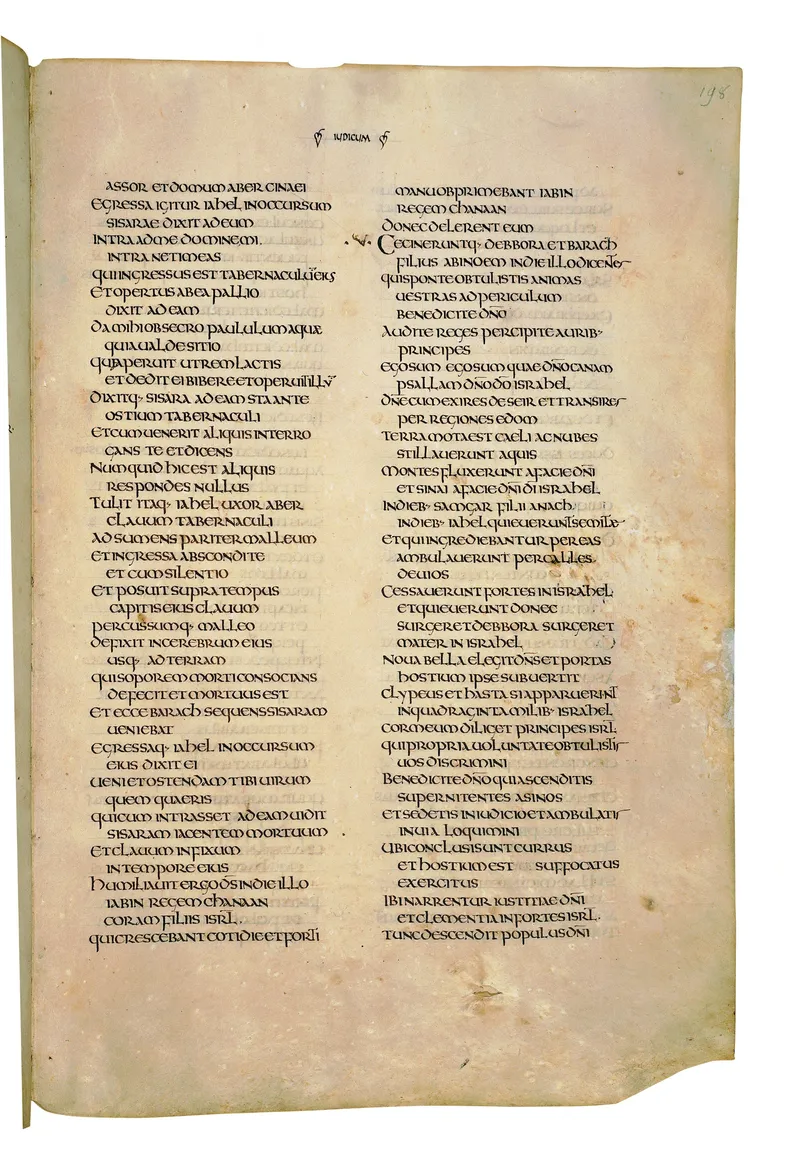 198
IUDICUM
ASSOR ET DOMUM ABER CINAEI
EGRESSA IGITUR IAHEL IN OCCURSUM
SISARAE DIXIT AD EUM
INTRA AD ME DOMINE MI.
INTRA NE TIMEAS
QUI INGRESSUS EST TABERNACULŪ EIUS
ET OPERTUS AB EA PALLIO
DIXIT AD EAM
DA MIHI OBSECRO PAULULUM AQUAE
QUIA UALDE SITIO
QUAE APERUIT UTREM LACTIS
ET DEDIT EI BIBERE ET OPERUIT ILLŪ
DIXITQ· SISARA AD EAM STA ANTE
OSTIUM TABERNACULI
ET CUM UENERIT ALIQUIS INTERRO
GANS TE ET DICENS
NUMQUID HIC EST ALIQUIS
RESPONDES NULLUS
TULIT ITAQ· IAHEL UXOR ABER
CLAUUM TABERNACULI
ADSUMENS PARITER MALLEUM
ET INGRESSA ABSCONDITE
ET CUM SILENTIO
ET POSUIT SUPRA TEMPUS
CAPITIS EIUS CLAUUM
PERCUSSUMQ· MALLEO
DEFIXIT IN CEREBRUM EIUS
USQ· AD TERRAM
QUI SOPOREM MORTI CONSOCIANS
DEFECIT ET MORTUUS EST
ET ECCE BARACH SEQUENS SISARAM
UENIEBAT
EGRESSAQ· IAHEL IN OCCURSUM
EIUS DIXIT EI
UENI ET OSTENDAM TIBI UIRUM
QUEM QUAERIS
QUI CUM INTRASSET AD EAM UIDIT
SISARAM IACENTEM MORTUUM
ET CLAUUM INFIXUM
IN TEMPORE EIUS
HUMILIAUIT ERGO D̄S IN DIE ILLO
IABIN REGEM CHANAAN
CORAM FILIIS ISRL̄.
QUI CRESCEBANT COTIDIE ET FORTI
MANU OBPRIMEBANT IABIN
REGEM CHANAAN
DONEC DELERENT EUM
CECINERUNTQ· DEBBORA ET BARACH
FILIUS ABINOEM IN DIE ILLO DICENTES
QUI SPONTE OBTULISTIS ANIMAS
UESTRAS AD PERICULUM
BENEDICITE DN̄O
AUDITE REGES PERCIPITE AURIB·
PRINCIPES
EGO SUM EGO SUM QUAE DN̄O CANAM
PSALLAM DN̄O D̄O ISRAHEL
DN̄E CUM EXIRES DE SEIR ET TRANSIRES
PER REGIONES EDOM
TERRA MOTA EST CAELI AC NUBES
STILLAUERUNT AQUIS
MONTES FLUXERUNT A FACIE DN̄I
ET SINAI A FACIE DN̄I D̄I ISRAHEL
IN DIEB· SAMGAR FILII ANATH
IN DIEB· IAHEL QUIEUERUNT SEMITAE
ET QUI INGREDIEBANTUR PER EAS
AMBULAUERUNT PER CALLES
DEUIOS
CESSAUERUNT FORTES IN ISRAHEL
ET QUIEUERUNT DONEC
SURGERET DEBBORA SURGERET
MATER IN ISRAHEL
NOUA BELLA ELEGIT DN̄S ET PORTAS
HOSTIUM IPSE SUBUERTIT
CLYPEUS ET HASTA SI APPARUERINT
IN QUADRAGINTA MILIB· ISRAHEL
COR MEUM DILIGET PRINCIPES ISRL̄
QUI PROPRIA UOLUNTATE OBTULISTIS
UOS DISCRIMINI
BENEDICITE DN̄O QUI ASCENDITIS
SUPER NITENTES ASINOS
ET SEDETIS IN IUDICIO ET AMBULATIS
IN UIA LOQUIMINI
UBI CONLISI SUNT CURRUS
ET HOSTIUM EST SUFFOCATUS
EXERCITUS
IBI NARRENTUR IUSTITIAE DN̄I
ET CLEMENTIA IN FORTES ISRL̄.
TUNC DESCENDIT POPULUS DN̄I